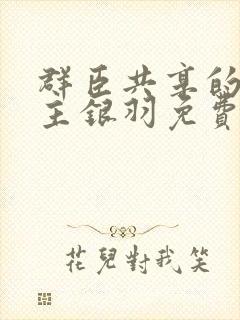 群臣共享的
主銀羽免費
花兒對我笑